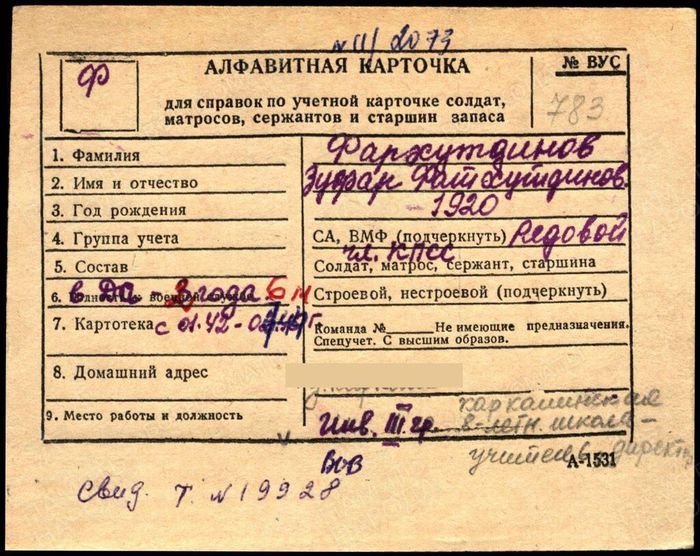 N III/2073
Ф
АЛФАВИТНАЯ КАРТОЧКА
для справок по учетной карточке солдат,
матросов, сержантов и старшин запаса
№ ВУС
783
1. Фамилия Фархутдинов
2. Имя и отчество Зуфар Фатхутдинов.
3. Год рождения 1920
4. Группа учета СА, ВМФ (подчеркнуть) Рядовой
чл. КПСС
5. Состав Солдат, матрос, сержант, старшина
в ДА - 2 года 6 м
6. Годность к военной службе Строевой, нестроевой (подчеркнуть)
7. Картотека с 01.42 - Команда №____ Не имеющие предназначения.
Спецучет. С высшим образов.
8. Домашний адрес
9. Место работы и должность Инв. III гр. 8-летн. школа -
учитель, директ
ВОВ
А-1531
Свид. Т. N 19928